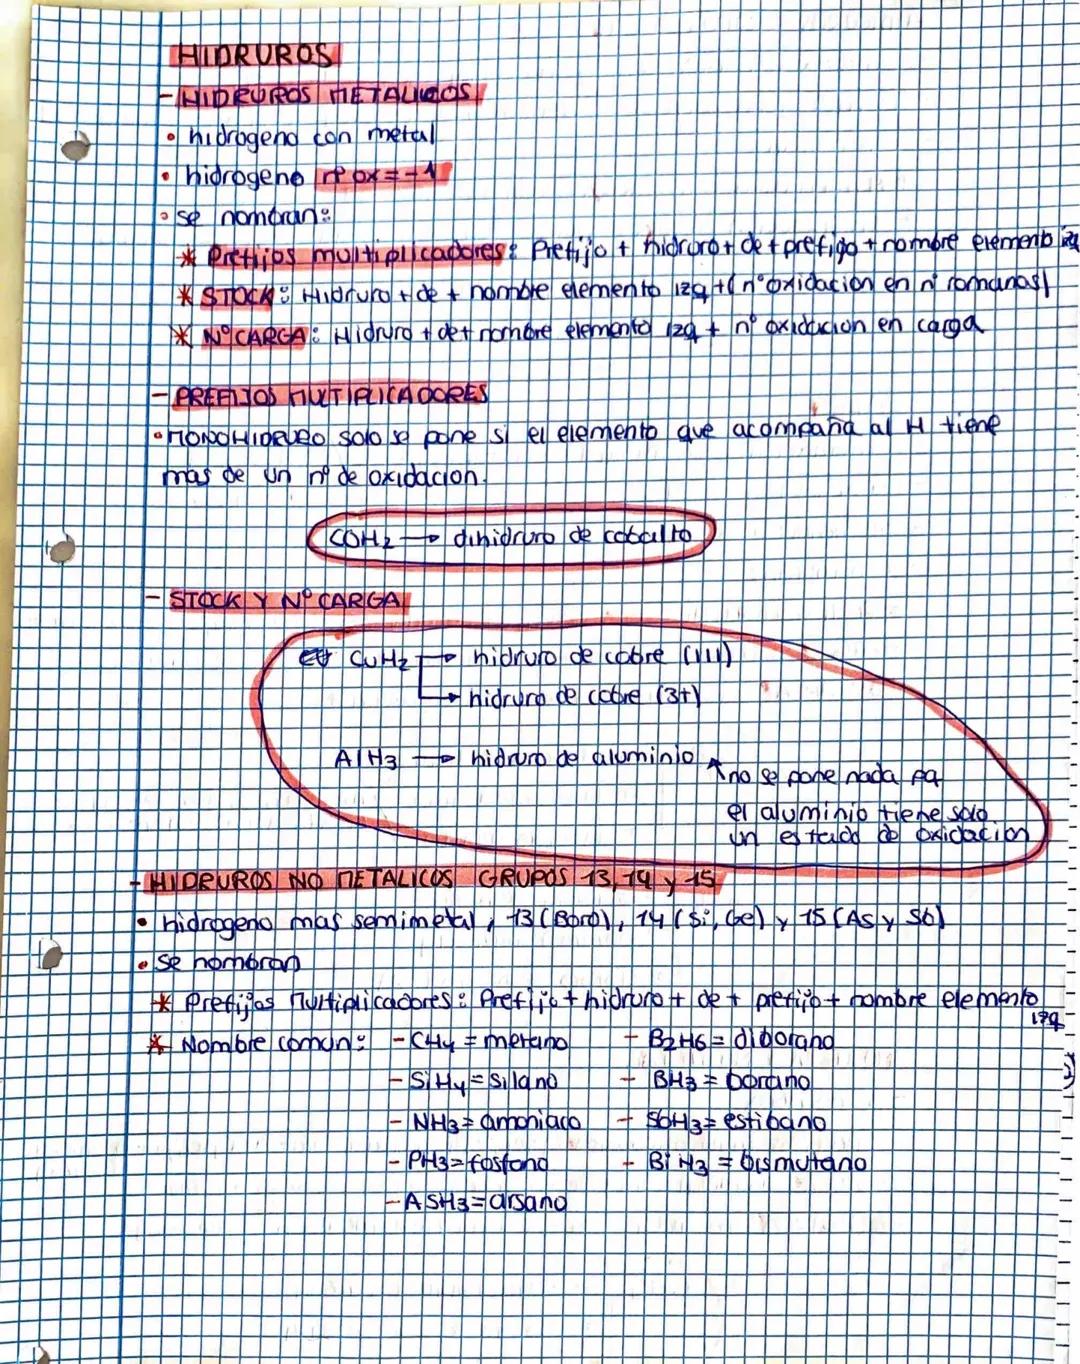 HIDRUROS
- HIDRUROS METALICOS
• hidrogeno con metal
• hidrogeno nº ox = -1
• se nombran:
* Prefijos multiplicadores: Prefijo + hidruro + de + prefigo + nombre elemento izq
* STOCK: Hidruro + de + nombre elemento izq + (nº oxidacion en nº romanos)
* Nº CARGA: Hidruro + de + nombre elemento izq + nº oxidacion en carga
- PREFIJOS MULTIPLICADORES
• MONOHIDRURO solo se pone si el elemento que acompaña al H tiene
mas de un nº de oxidacion.
COH2 → dihidruro de cobalto
- STOCK Y Nº CARGA
CuH2 → hidruro de cobre (III)
→ hidruro de cobre (3+)
AlH3 → hidruro de aluminio
no se pone nada pq
el aluminio tiene solo
un estado de oxidacion
- HIDRUROS NO METALICOS GRUPOS 13, 14 y 15
• hidrogeno mas semimetal, 13 (Boro), 14 (Si, Ge) y 15 (As y Sb)
• se nombran
* Prefijos Multiplicadores: Prefijo + hidruro + de + prefijo + nombre elemento
izq
* Nombre comun: - CH4 = metano - B2H6 = diborano
- SiH4 = silano - BH3 = borano
- NH3 = amoniaco - SbH3 = estibano
- PH3 = fosfano - BiH3 = bismutano
- ASH3 = arsano